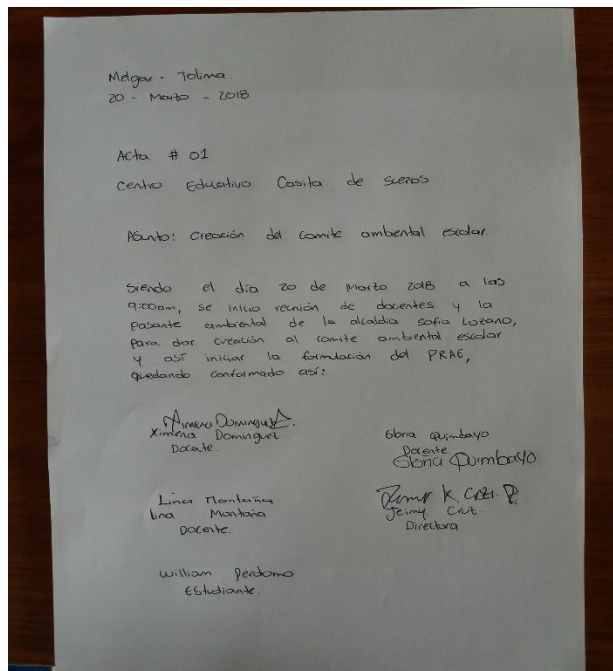 Melgar - Tolima
20 - Marzo - 2018
Acta # 01
Centro Educativo Casita de Sueños
Asunto: Creación del comite ambiental escolar.
Siendo el día 20 de Marzo 2018 a las
9:00am, se inicio reunión de docentes y la
pasante ambiental de la alcaldia Sofia Lozano,
para dar creación al comite ambiental escolar
y así iniciar la formulación del PRAE,
quedando conformado así:
Ximena Dominguez.
Ximena Dominguez.
Docente.
Gloria Quimbayo
Docente
Gloria Quimbayo
Lina Montaña
Lina Montaña
Docente.
K. Cruz. P
Jeimy Cruz.
Directora
William Perdomo
Estudiante.